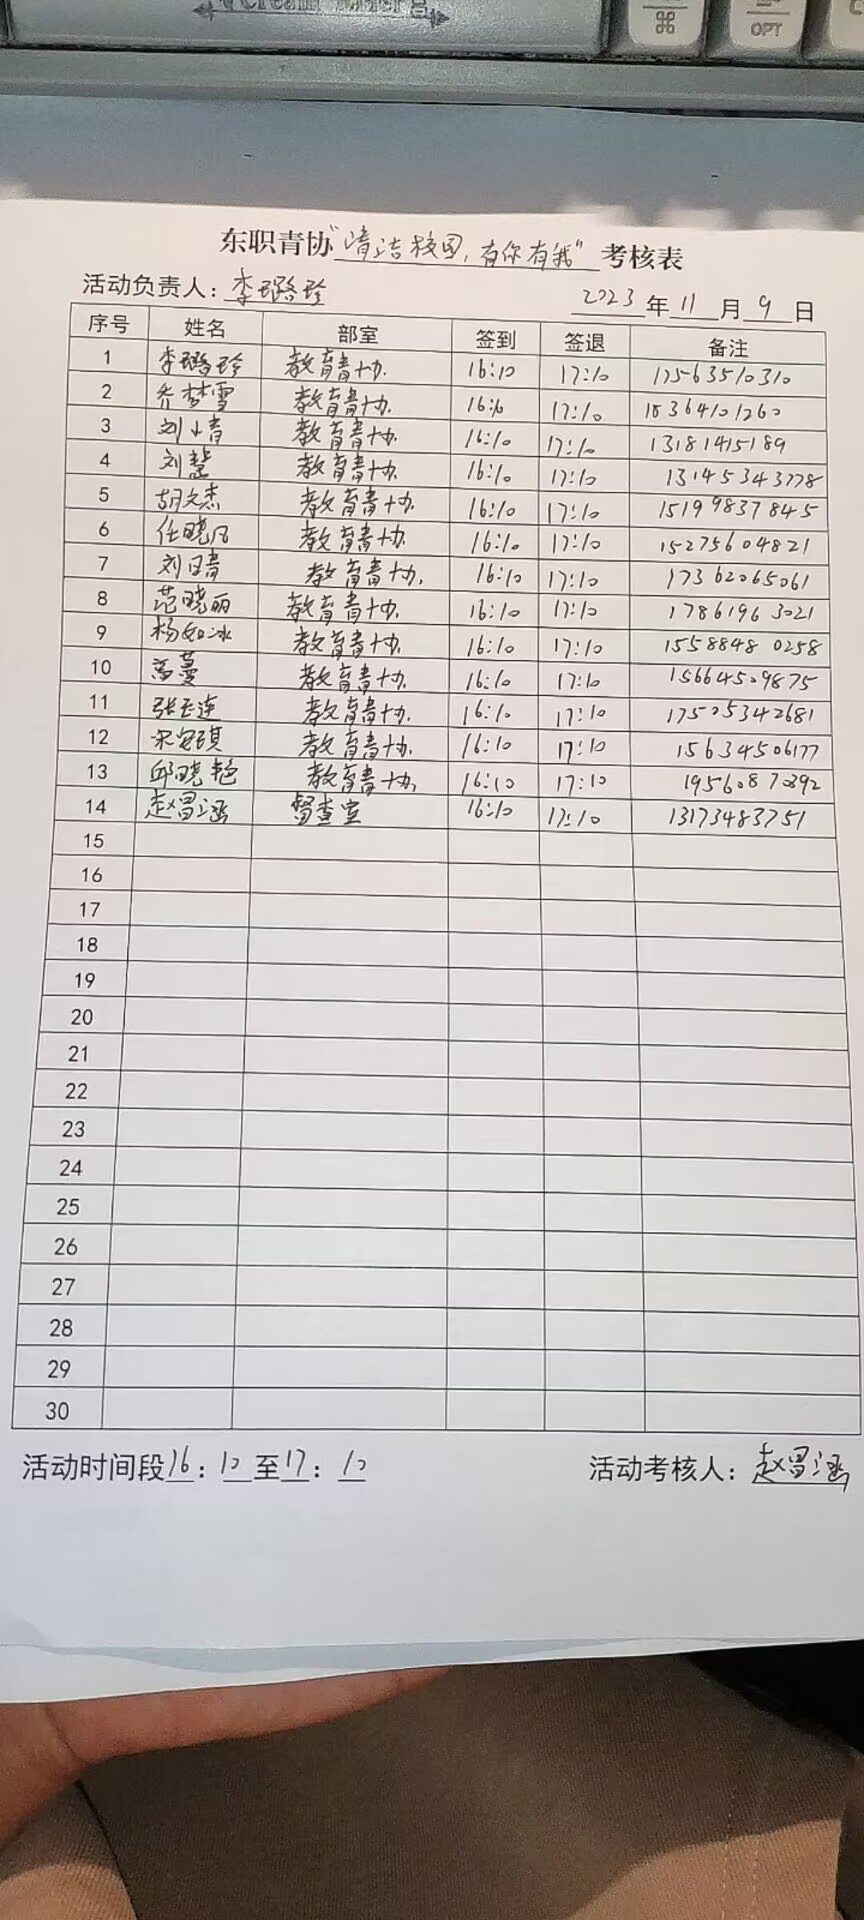 ⌘
OPT
东职青协"清洁校园,有你有我"考核表
活动负责人:李璐玲 2023年11月9日
序号 姓名 部室 签到 签退 备注
1 李璐玲 教育青协 16:10 17:10 17563510310
2 乔梦雪 教育青协 16:10 17:10 18364101260
3 刘小青 教育青协 16:10 17:10 13181415189
4 刘慧 教育青协 16:10 17:10 13145343778
5 胡文杰 教育青协 16:10 17:10 15199837845
6 任晓凡 教育青协 16:10 17:10 15275604821
7 刘日青 教育青协 16:10 17:10 17362065061
8 范晓丽 教育青协 16:10 17:10 17861963021
9 杨如冰 教育青协 16:10 17:10 15588480258
10 蔓 教育青协 16:10 17:10 15664509875
11 张玉莲 教育青协 16:10 17:10 17505342681
12 宋安琪 教育青协 16:10 17:10 15634506177
13 邱晓艳 教育青协 16:10 17:10
14 赵昌涵 督查室 16:10 17:10 13173483751
15
16
17
18
19
20
21
22
23
24
25
26
27
28
29
30
活动时间段16:10至17:10 活动考核人:赵昌涵